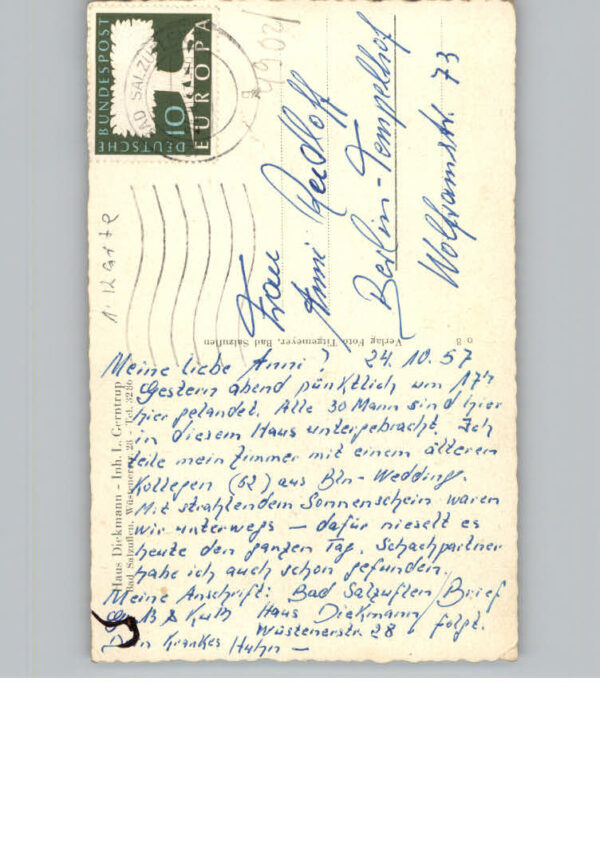 DEUTSCHE BUNDESPOST
10
EUROPA
BAD SALZUFLEN
1. Karte
Frau
Anni
Berlin-Tempelhof
Wolframstr. 73
Verlag Foto Tilgemeyer, Bad Salzuflen
Haus Diekmann - Inh. L. Gerntrup
Bad Salzuflen, Wüstenerstr. 28 - Tel. 3286
Meine liebe Anni! 24.10.57
Gestern abend pünktlich um 17
hier gelandet. Alle 30 Mann sind hier
in diesem Haus untergebracht. Ich
teile mein Zimmer mit einem älteren
Kollegen (52) aus Bln-Wedding.
Mit strahlendem Sonnenschein waren
wir unterwegs – dafür nieselt es
heute den ganzen Tag. Schachpartner
habe ich auch schon gefunden.
Meine Anschrift: Bad Salzuflen / Brief
Gruß & Kuß Haus Diekmann / folgt.
Wüstenerstr. 28
Dein krankes Huhn –